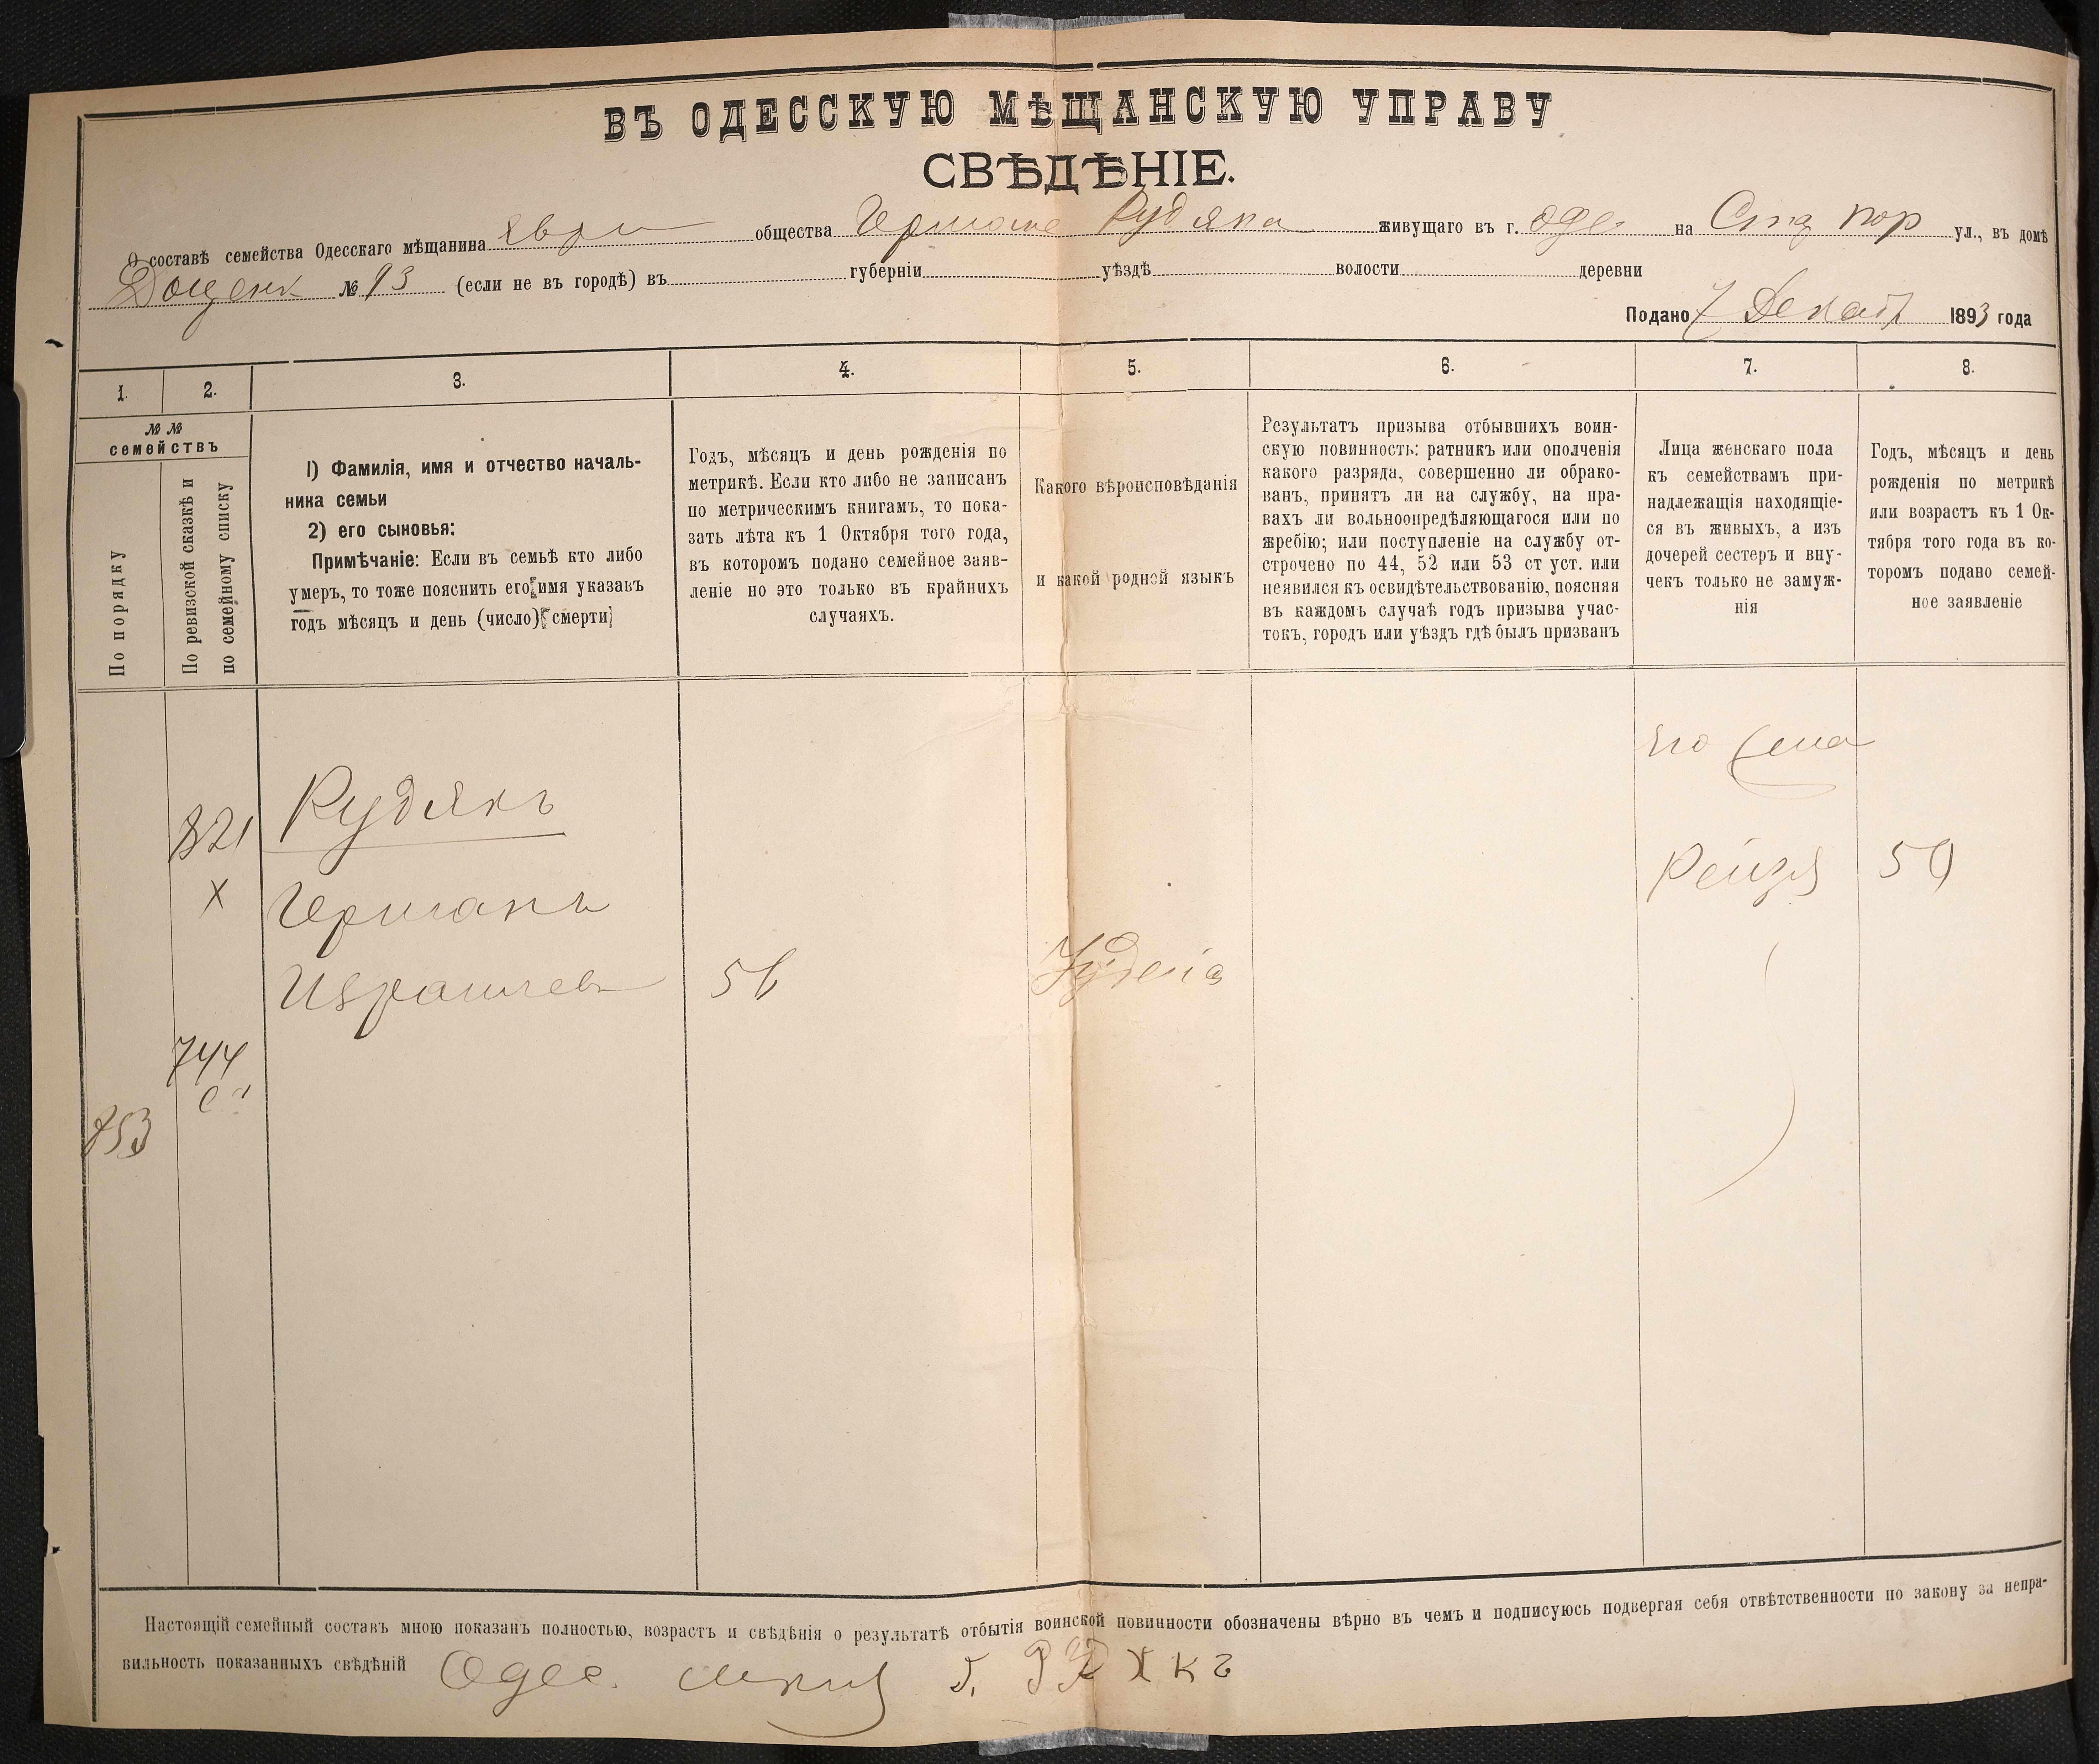 ВЪ ОДЕССКУЮ МѢЩАНСКУЮ УПРАВУ
СВѢДѢНІЕ.
О составѣ семейства Одесскаго мѣщанина Евреи общества Германа Рудяка живущаго въ г. Оде на Стар пор ул., въ домѣ
Дощенк № 93 (если не въ городѣ) въ губерніи уѣздѣ волости деревни
Подано 7 Декаб 1893 года
1. 2. 3. 4. 5. 6. 7. 8.
№ №
семействъ
По порядку
По ревизской сказкѣ и
по семейному списку
1) Фамилія, имя и отчество началь-
ника семьи
2) его сыновья:
Примѣчаніе: Если въ семьѣ кто либо
умеръ, то тоже пояснить его имя указавъ
годъ мѣсяцъ и день (число) смерти
Годъ, мѣсяцъ и день рожденія по
метрикѣ. Если кто либо не записанъ
по метрическимъ книгамъ, то пока-
зать лѣта къ 1 Октября того года,
въ которомъ подано семейное заяв-
леніе но это только въ крайнихъ
случаяхъ.
Какого вѣроисповѣданія
и какой родной языкъ
Результатъ призыва отбывшихъ воин-
скую повинность: ратникъ или ополченія
какого разряда, совершенно ли обрако-
ванъ, принятъ ли на службу, на пра-
вахъ ли вольноопредѣляющагося или по
жребію; или поступленіе на службу от-
строчено по 44, 52 или 53 ст уст. или
неявился къ освидѣтельствованію, поясняя
въ каждомъ случаѣ годъ призыва учас-
токъ, городъ или уѣздъ гдѣ былъ призванъ
Лица женскаго пола
къ семействамъ при-
надлежащія находящіе-
ся въ живыхъ, а изъ
дочерей сестеръ и вну-
чекъ только не замуж-
нія
Годъ, мѣсяцъ и день
рожденія по метрикѣ
или возрастъ къ 1 Ок-
тября того года въ ко-
торомъ подано семей-
ное заявленіе
его жена
821 Рудякъ
Рейзя 50
X Германъ
Израилев 56 Іудеіа
744
753
Настоящій семейный составъ мною показанъ полностью, возрастъ и свѣдѣнія о результатѣ отбытія воинской повинности обозначены вѣрно въ чемъ и подписуюсь подвергая себя отвѣтственности по закону за непра-
вильность показанныхъ свѣдѣній Одес.